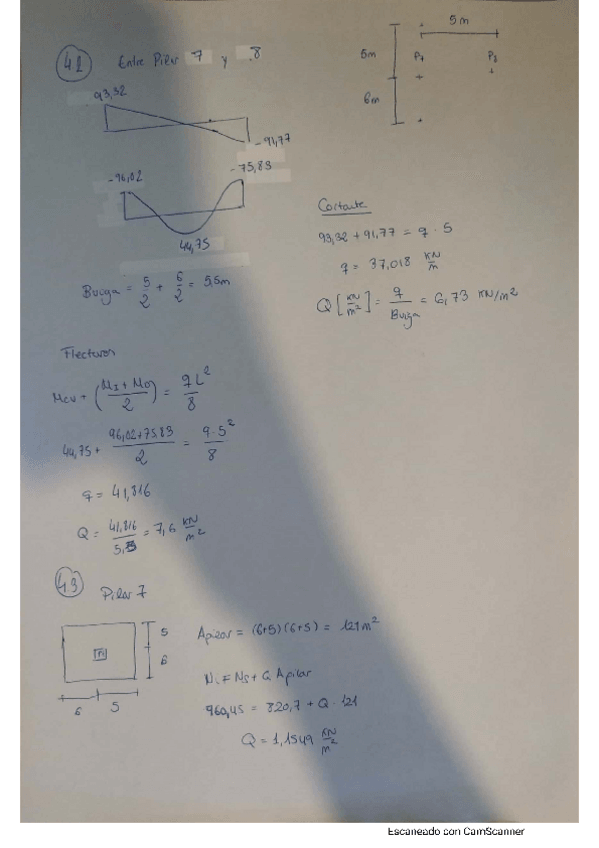 42 Entre Pilar 7 y 8
5m
5m P7 P8
6m
93,32
-91,77
-96,02 -75,83
44,75
Buiga = 5/2 + 6/2 = 5,5m
Cortante
93,32 + 91,77 = q · 5
q = 37,018 KN/m
Q [KN/m²] = q/Buiga = 6,73 KN/m²
Flectores
Mcv + (MI + MD / 2) = qL²/8
44,75 + 96,02+75,83/2 = q·5²/8
q = 41,816
Q = 41,816/5,5 = 7,6 KN/m²
43 Pilar 7
5
6
6 5
Apilar = (6+5)(6+5) = 121m²
Ni = Ns + Q Apilar
960,45 = 820,7 + Q · 121
Q = 1,1549 KN/m²
Escaneado con CamScanner